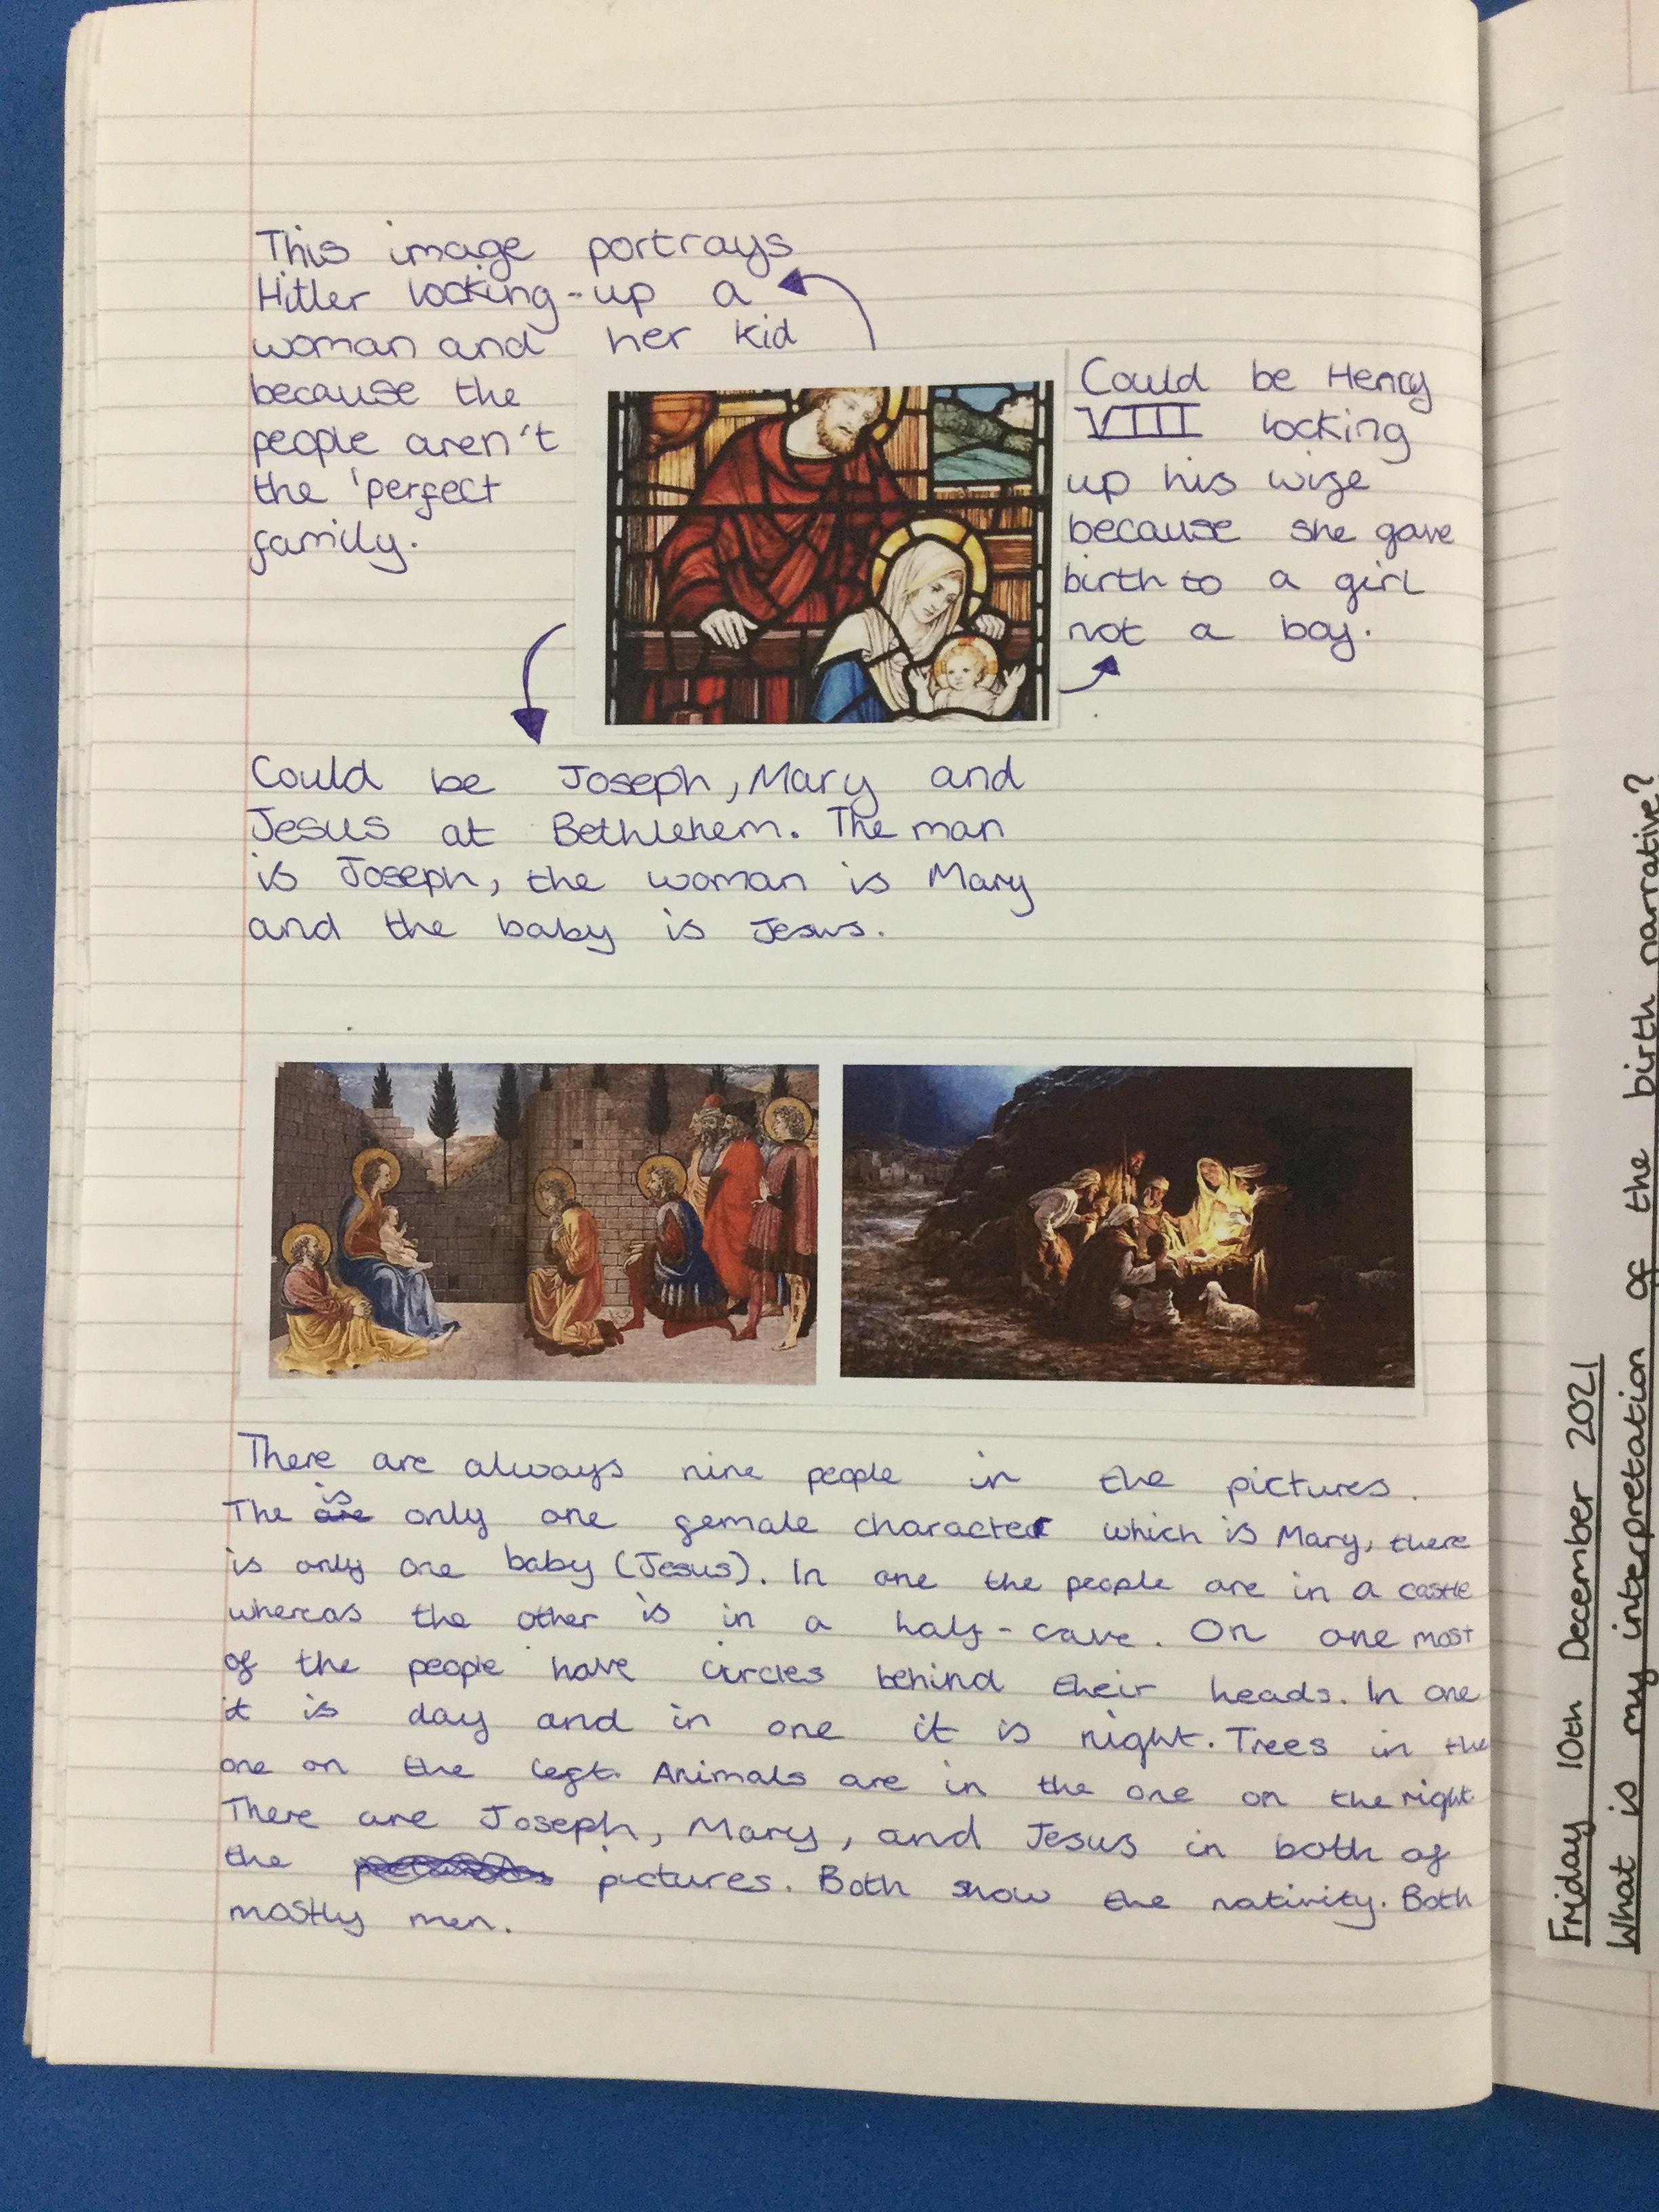 This image portrays
Hitler locking-up a
woman and her kid
because the
people aren't
the 'perfect
family.
Could be Henry
VIII locking
up his wife
because she gave
birth to a girl
not a boy.
Could be Joseph, Mary and
Jesus at Bethlehem. The man
is Joseph, the woman is Mary
and the baby is Jesus.
There are always nine people in the pictures.
The is only one female character which is Mary, there
is only one baby (Jesus). In one the people are in a castle
whereas the other is in a half-cave. On one most
of the people have circles behind their heads. In one
it is day and in one it is night. Trees in the
one on the left. Animals are in the one on the right.
There are Joseph, Mary, and Jesus in both of
the pictures. Both show the nativity. Both
mostly men.
Friday 10th December 2021
What is my interpretation of the birth narrative?